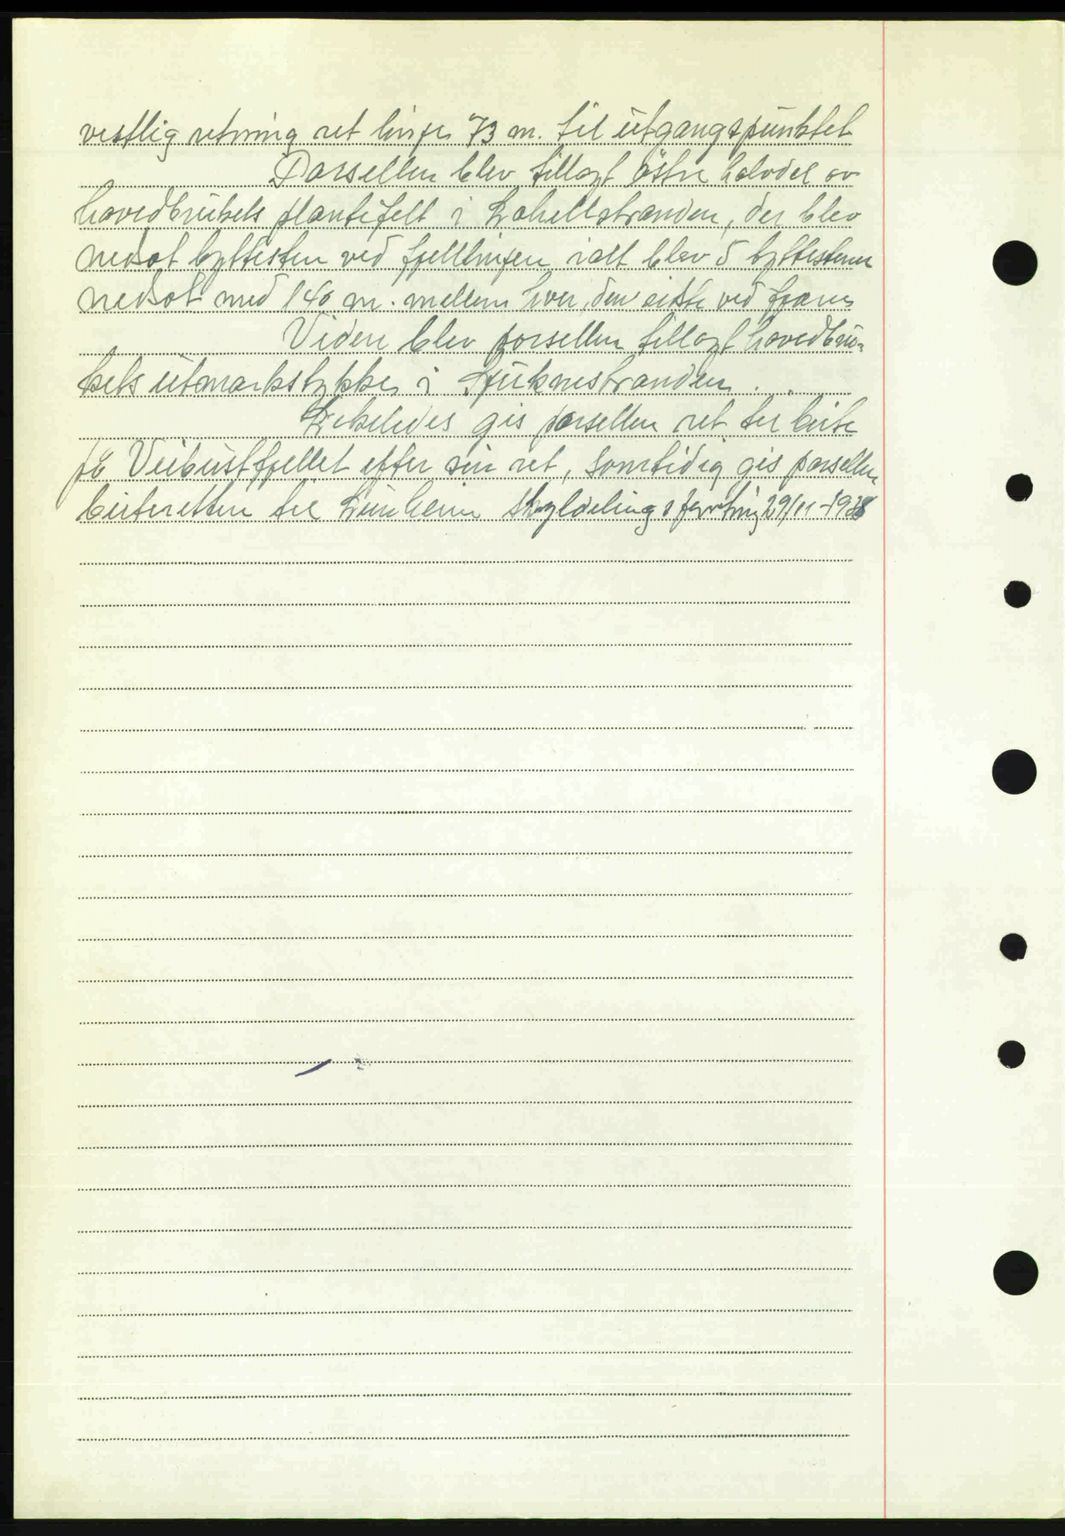 vestlig retning ret linje 73 m. til utgangspunktet
Parsellen blev tillagt östre halvdel av
hovedbrukets plantefelt i stranden, der blev
nedsat byttesten ved fjellinjen ialt blev 5 byttestener
nedsat med 140 m. mellem hver, den siste ved fjæren
Videre blev parsellen tillagt hovedbru-
kets utmarkstykke i stranden.
Likeledes gis parsellen ret til beite
på Veibustfjellet efter sin ret, samtidig gis parsellen
beiteretten til skyldelings 29/11-1938